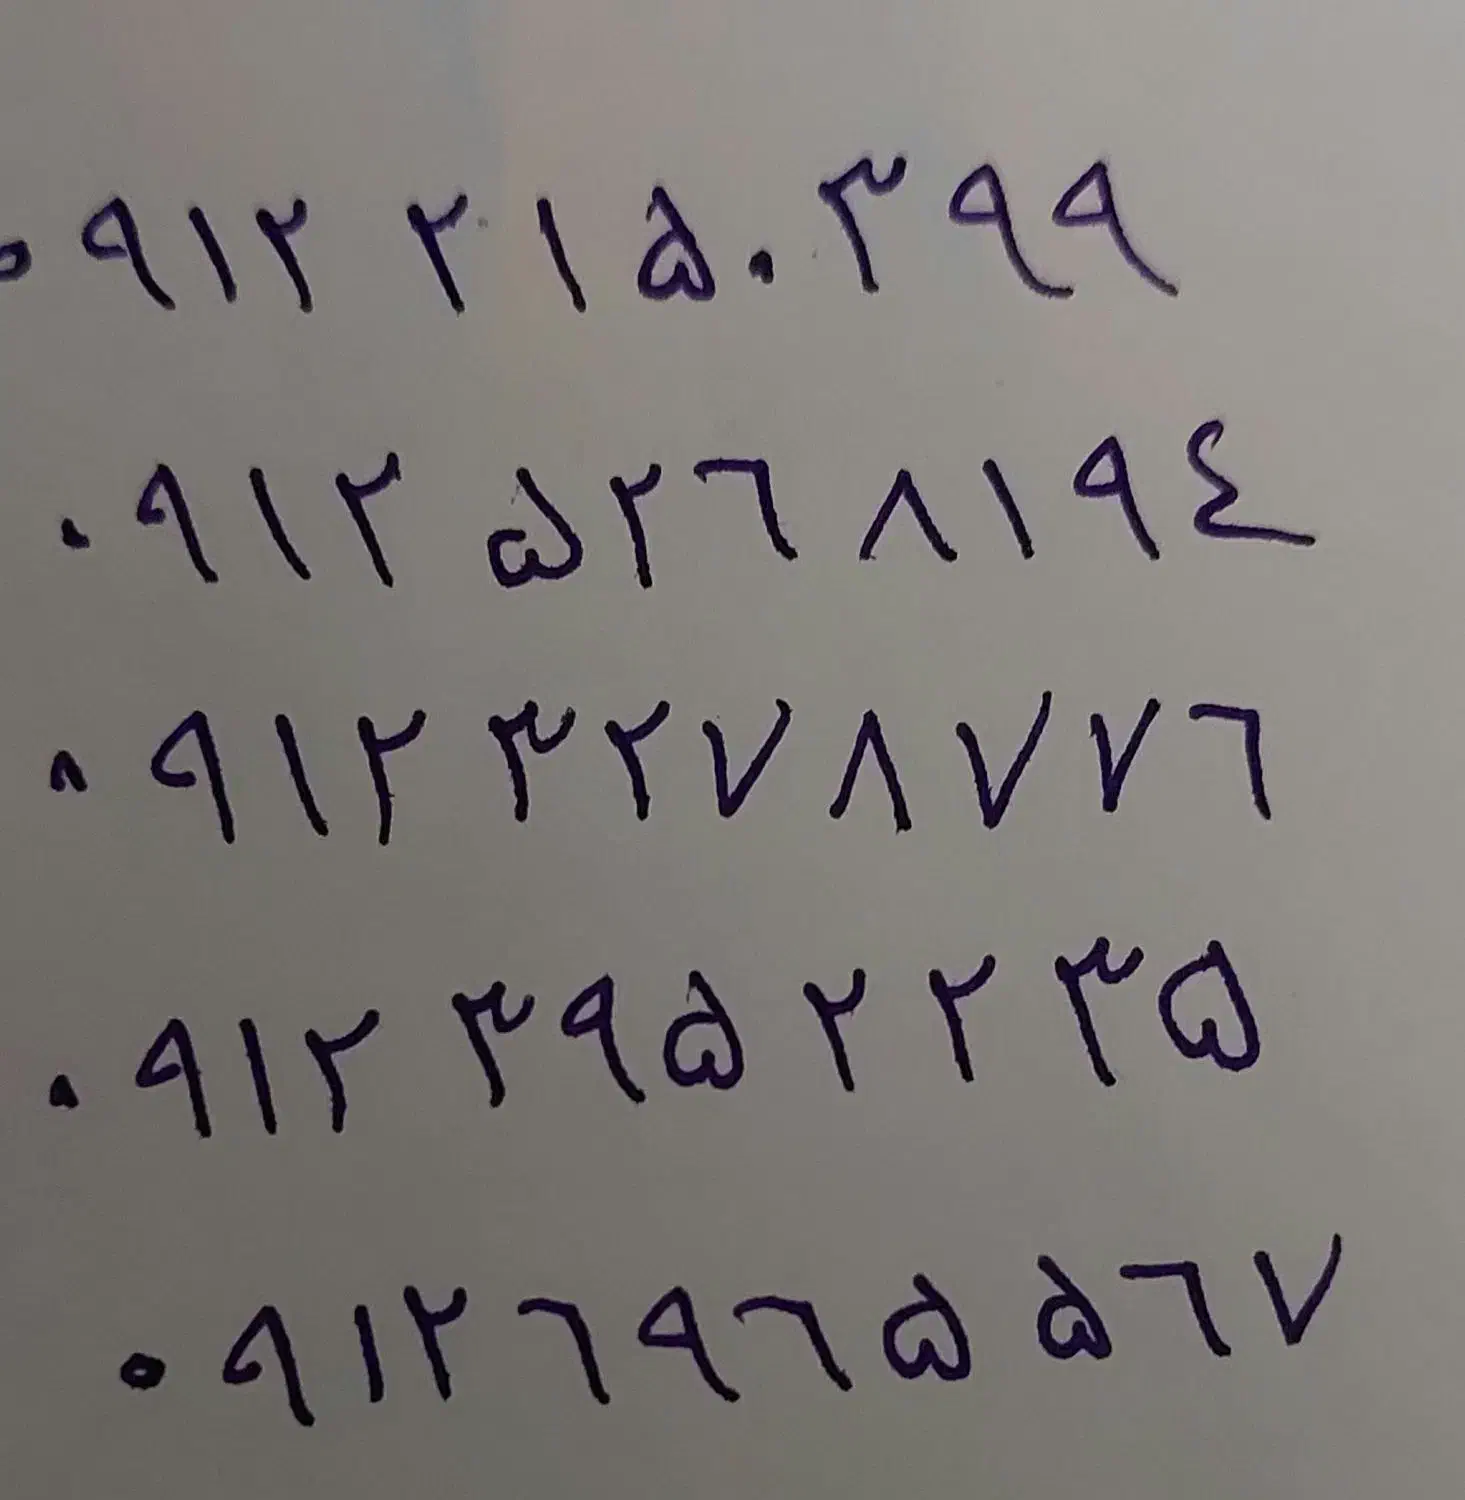 ۰۹۱۲ ۲۱۵۰۳۹۹
۰۹۱۲ ۵۲۶۸۱۹٤
۰۹۱۲ ۳۲۷۸۷۷۶
۰۹۱۲ ۳۹۵۲۲۳۵
۰۹۱۲۶۹۶۵۵۶۷